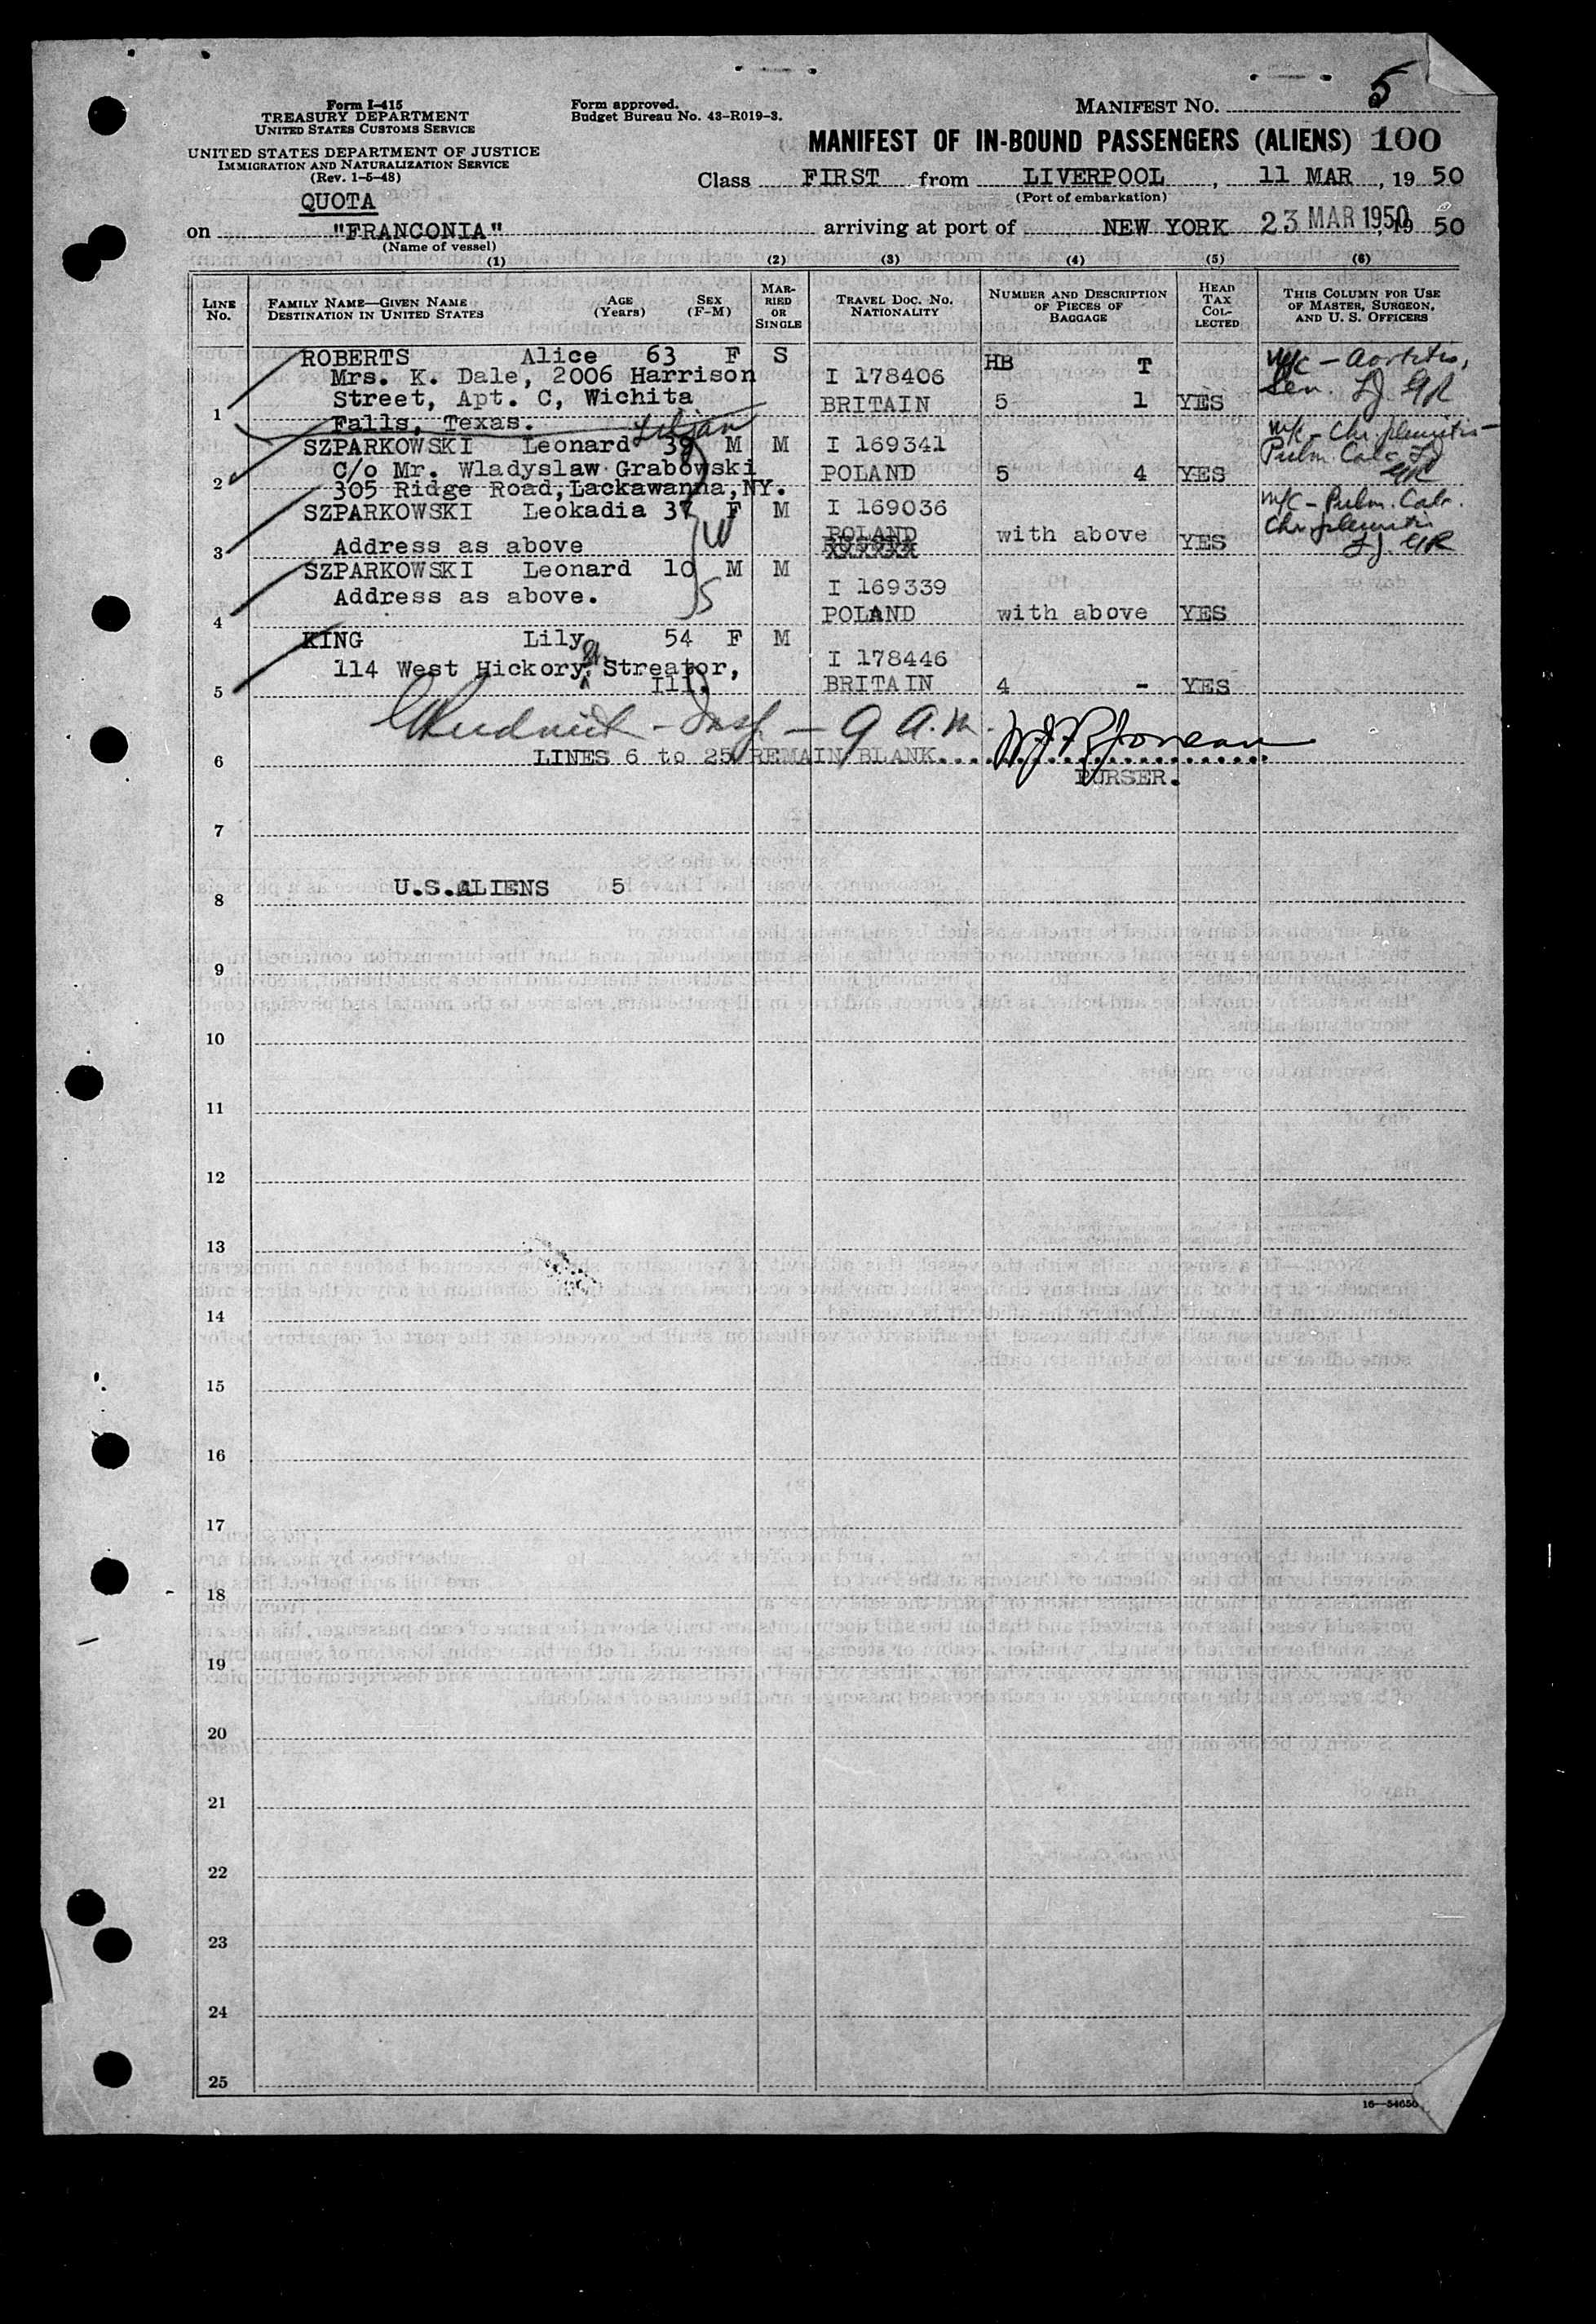 Form I-415
TREASURY DEPARTMENT
UNITED STATES CUSTOMS SERVICE
UNITED STATES DEPARTMENT OF JUSTICE
IMMIGRATION AND NATURALIZATION SERVICE
(Rev. 1-5-48)
Form approved.
Budget Bureau No. 43-R019-3.
MANIFEST No. 5
MANIFEST OF IN-BOUND PASSENGERS (ALIENS) 100
Class FIRST from LIVERPOOL, 11 MAR, 19 50
(Port of embarkation)
QUOTA
on "FRANCONIA" arriving at port of NEW YORK 23 MAR 1950, 19 50
(Name of vessel)
(1) (2) (3) (4) (5) (6)
LINE No. FAMILY NAME—GIVEN NAME DESTINATION IN UNITED STATES AGE (YEARS) SEX (F-M) MARRIED OR SINGLE TRAVEL DOC. NO. NATIONALITY NUMBER AND DESCRIPTION OF PIECES OF BAGGAGE HEAD TAX COLLECTED THIS COLUMN FOR USE OF MASTER, SURGEON, AND U. S. OFFICERS
ROBERTS Alice 63 F S HB T M/C - Aortitis,
Mrs. K. Dale, 2006 Harrison I 178406 Sen. GR
Street, Apt. C, Wichita BRITAIN 5 1 YES
1 Falls, Texas.
SZPARKOWSKI Leonard 39 M M I 169341 M/C - Chr.
C/o Mr. Wladyslaw Grabowski POLAND 5 4 YES Pulm. Calc. GR
2 305 Ridge Road, Lackawanna, NY.
SZPARKOWSKI Leokadia 37 F M I 169036 M/C - Pulm. Calc.
POLAND with above Chr.
3 Address as above YES GR
SZPARKOWSKI Leonard 10 M M I 169339
Address as above.
4 POLAND with above YES
KING Lily 54 F M
114 West Hickory St, Streator, I 178446
5 Ill. BRITAIN 4 - YES
- Insp - 9 A.M.
6 LINES 6 to 25 REMAIN BLANK
PURSER.
7
8 U.S.ALIENS 5
9
10
11
12
13
14
15
16
17
18
19
20
21
22
23
24
25
16—54650